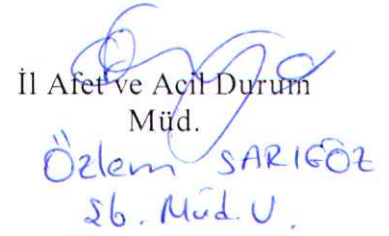 İl Afet ve Acil Durum
Müd.
Özlem SARIGÖZ
Şb. Müd. V.